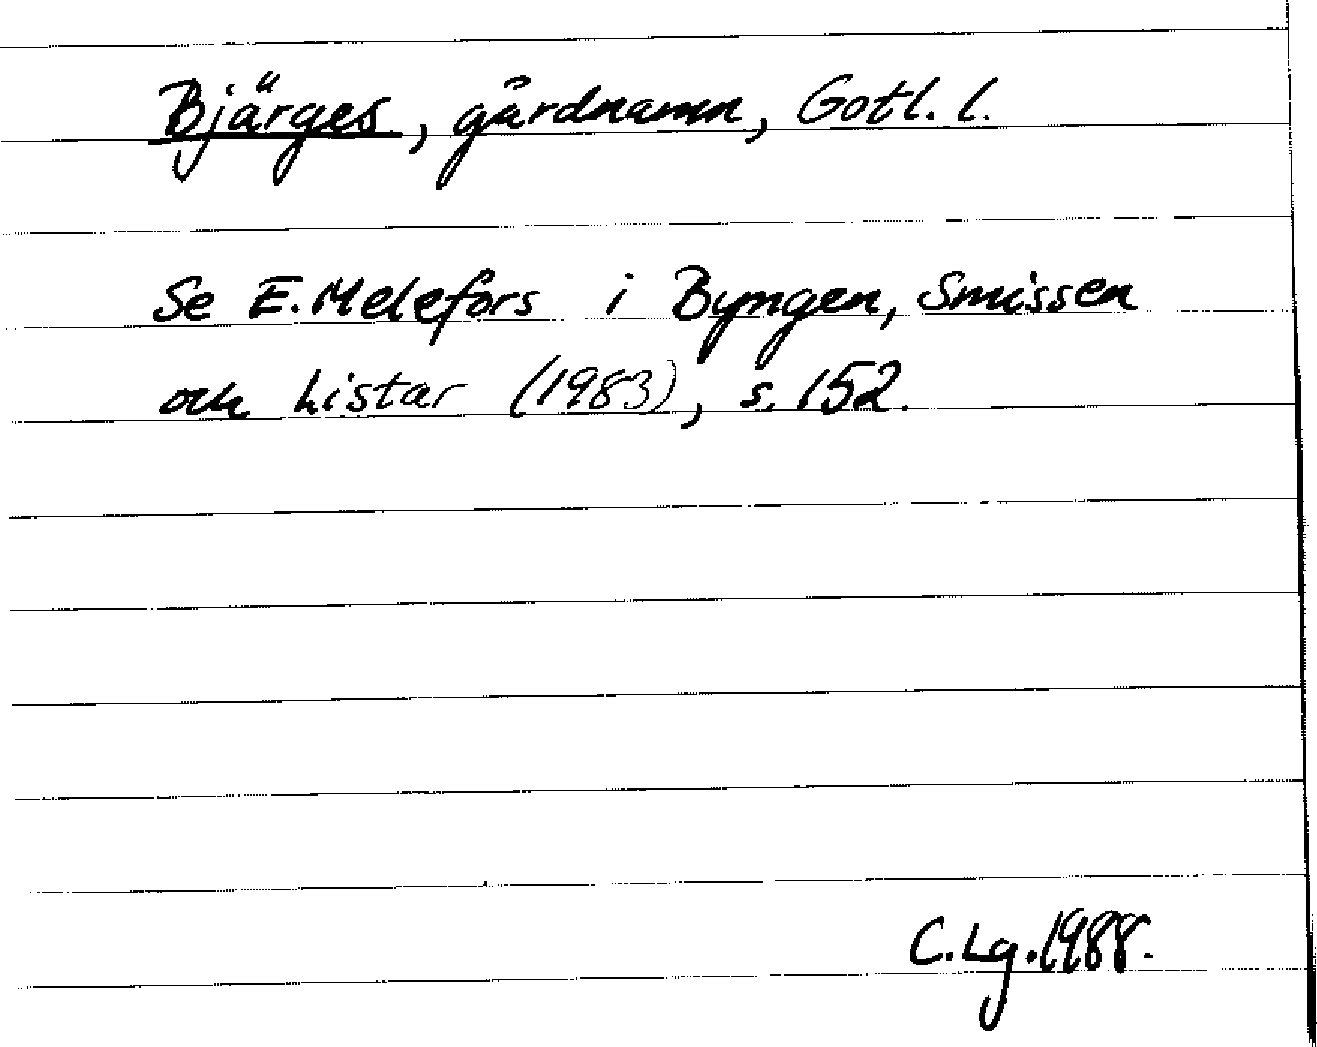 Bjärges, gårdnamn, Gotl. l.
Se E. Melefors i Byngen, Smissen
och Listar (1983), s. 152.
C. Lg. 1988.